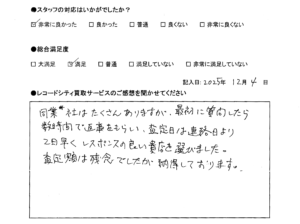 ●スタッフの対応はいかがでしたか？
☑非常に良かった □良かった □普通 □良くない □非常に良くない
●総合満足度
□大満足 ☑満足 □普通 □満足していない □非常に満足していない
記入日:2025年 12月 4日
●レコードシティ買取サービスのご感想を聞かせてください
同業他社はたくさんありますが、最初に質問したら
数時間で返事をもらい、査定日は連絡日より
2日早く レスポンスの良い貴店を選びました。
査定額は残念でしたが納得しております。